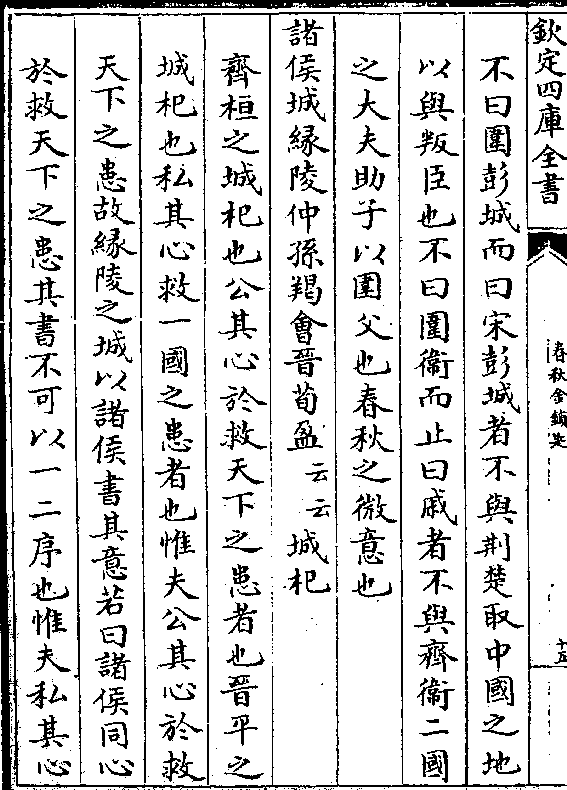 欽定四庫全書
春秋金鎖匙
不曰圍彭城而曰宋彭城者不與荆楚取中國之地
以與叛臣也不曰圍衞而止曰戚者不與齊衞二國
之大夫助子以圍父也春秋之微意也
諸侯城緣陵仲孫羯會晉荀盈云云城杞
齊桓之城杞也公其心於救天下之患者也晉平之
城杞也私其心救一國之患者也惟夫公其心於救
天下之患故緣陵之城以諸侯書其意若曰諸侯同心
於救天下之患其書不可以一二序也惟夫私其心